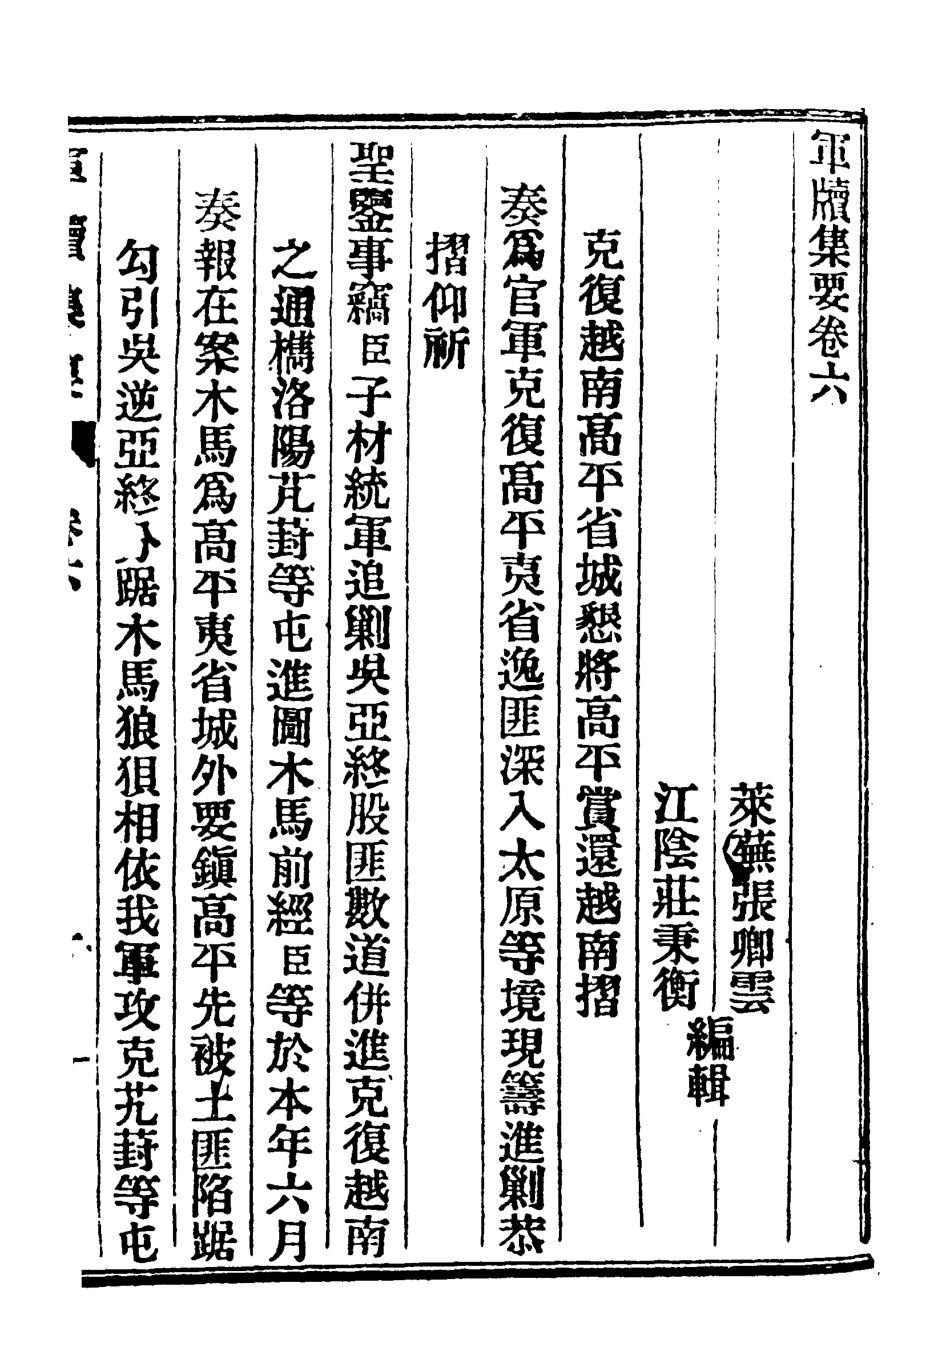 軍牘集要卷六
萊蕪張卿雲
江陰莊秉衡
編輯
克復越南高平省城懇將高平賞還越南摺
奏爲官軍克復高平夷省逸匪深入太原等境現籌進剿恭
摺仰祈
聖鑒事竊臣子材統軍追剿吳亞終股匪數道併進克復越南
之通槜洛陽芃葑等屯進圖木馬前經臣等於本年六月
奏報在案木馬爲高平夷省城外要鎭高平先被土匪陷踞
勾引吳逆亞終分踞木馬狼狽相依我軍攻克艽葑等屯
軍牘集要 卷六 一